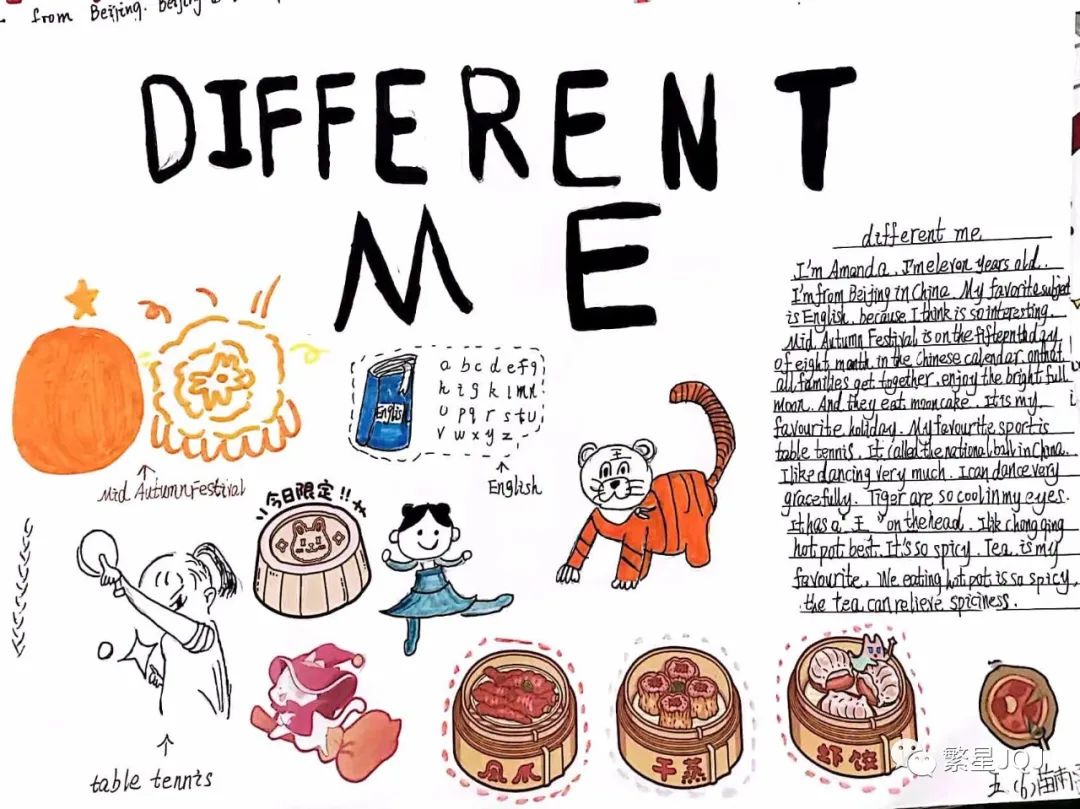 from Beijing. Beijing
DIFFERENT
ME
different me.
I'm Amanda. I'm eleven years old.
I'm from Beijing in China. My favorite subject
is English. because I think is so interesting.
Mid Autumn Festival is on the fifteenth day
of eight month in the Chinese calendar. on that
all families get together. enjoy the bright full
moon. And they eat mooncake. It is my
favourite holiday. My favourite sport is
table tennis. It called the national ball in China.
I like dancing very much. I can dance very
gracefully. Tiger are so cool in my eyes.
It has a "王" on the head. I lik chong qing
hot pot best. It's so spicy. Tea is my
favourite. We eating hot pot is so spicy.
the tea can relieve spiciness.
English
a b c d e f g
h i g k l m n
o p q r s t u
v w x y z
English
Mid Autumn Festival
今日限定!!
王
table tennis
凤爪
干蒸
虾饺
繁星JQJ
五(6)